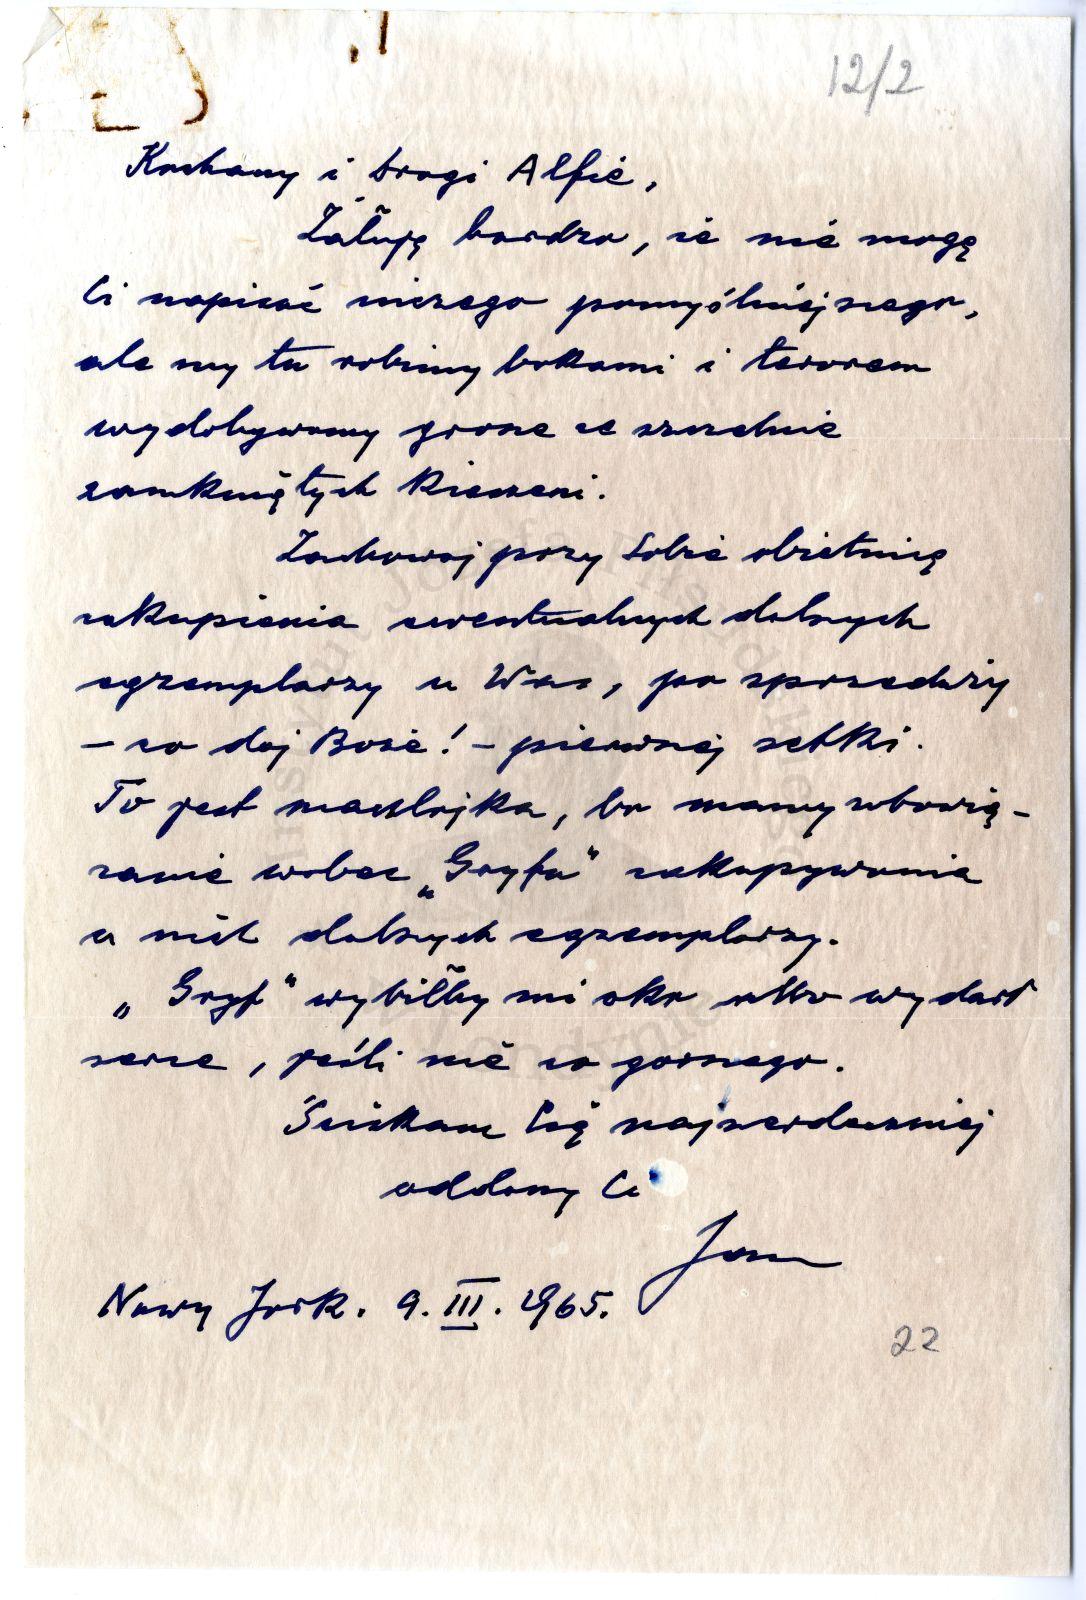 12/2
Kochany i drogi Alfie,
Żałuję bardzo, że nie mogę
Ci napisać niczego pomyślniejszego,
ale my tu robimy bokami i terorem
wydobywamy grosze ze szczelnie
zamkniętych kieszeni.
Zachowaj przy Sobie obietnicę
zakupienia ewentualnych dalszych
egzemplarzy u Was, po sprzedaży
– co daj Boże! – pierwszej setki.
To jest maulojka, bo mamy zbowią-
zanie wobec „Gryfu" zakupywania
u nich dalszych egzemplarzy.
„Gryf" wybiłby mi oko albo wydarł
serce, jeśli nie co gorszego.
Ściskam Cię najserdeczniej
oddany Ci
Jan
Nowy Jork. 9. III. 1965.
22